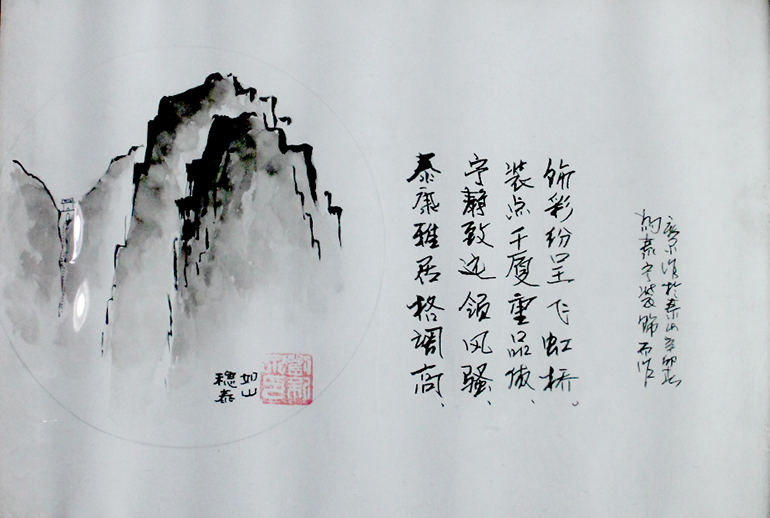 稳泰
如山
泰康雅居格调高、
宁静致远领风骚、
装点千厦重品、
饰彩纷呈飞虹桥。
为泰宁装饰而作
作於泰山辛卯